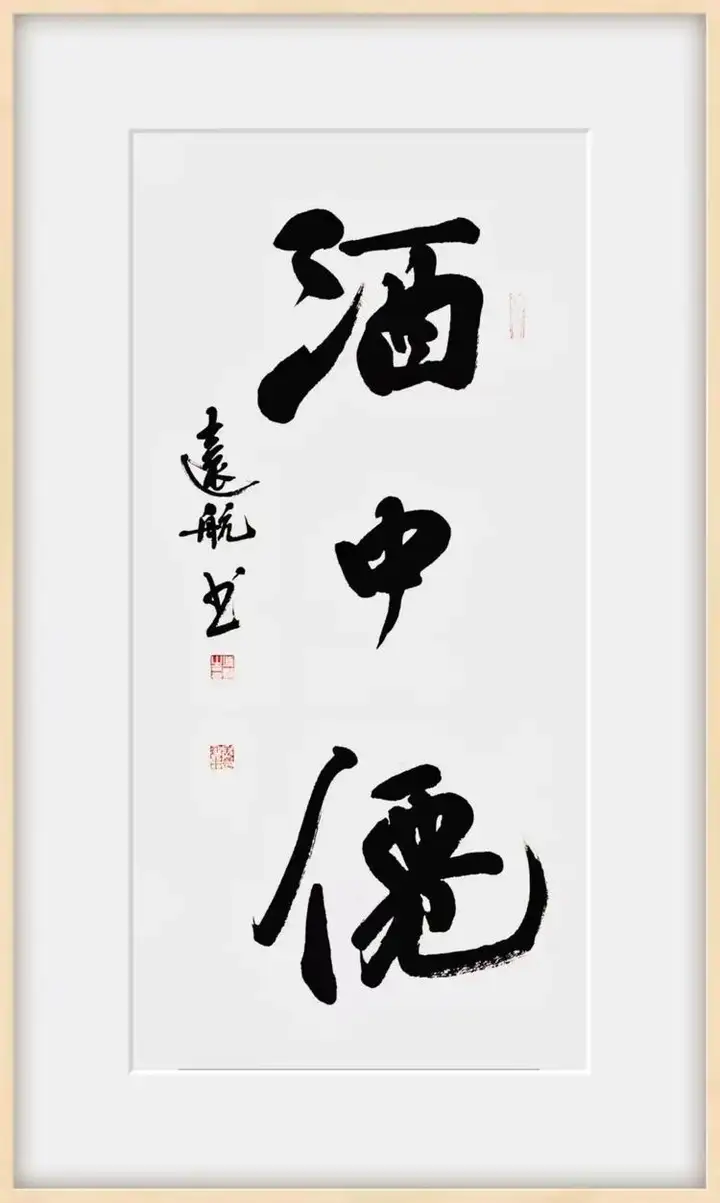 酒中僊
遠航书